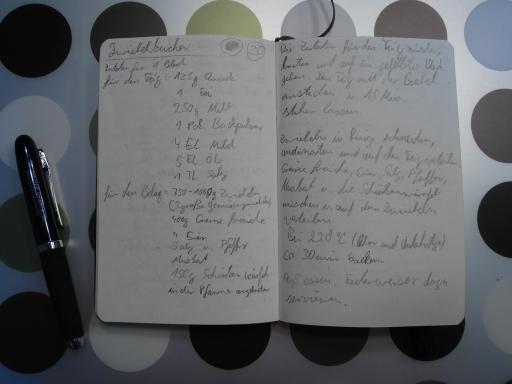 Zwiebelkuchen 20
Zutaten für 1 Blech
für den Teig: 125g Quark
1 Ei
250g Mehl
1 Pck Backpulver
4 EL Milch
5 EL Öl
1 TL Salz
für den Belag: 750-1000g Zwiebeln
400g Creme fraiche
4 Eier
Salz u. Pfeffer
Muskat
150g Schinkenwürfel
in der Pfanne angebraten
Die Zutaten für den Teig
kneten und auf ein gefettetes Blech
geben. Den Teig mit der Gabel
einstechen u. 15 Min.
stehen lassen.
Zwiebeln in Ringe schneiden,
andünsten und auf den Teig verteilen
Creme fraiche, Eier, Salz, Pfeffer,
Muskat u. die Schinkenwürfel
mischen u. auf den Zwiebeln
verteilen.
Bei 220°C (Ober und Unterhitze)
ca. 30min backen.
essen. Federweisser dazu
servieren.